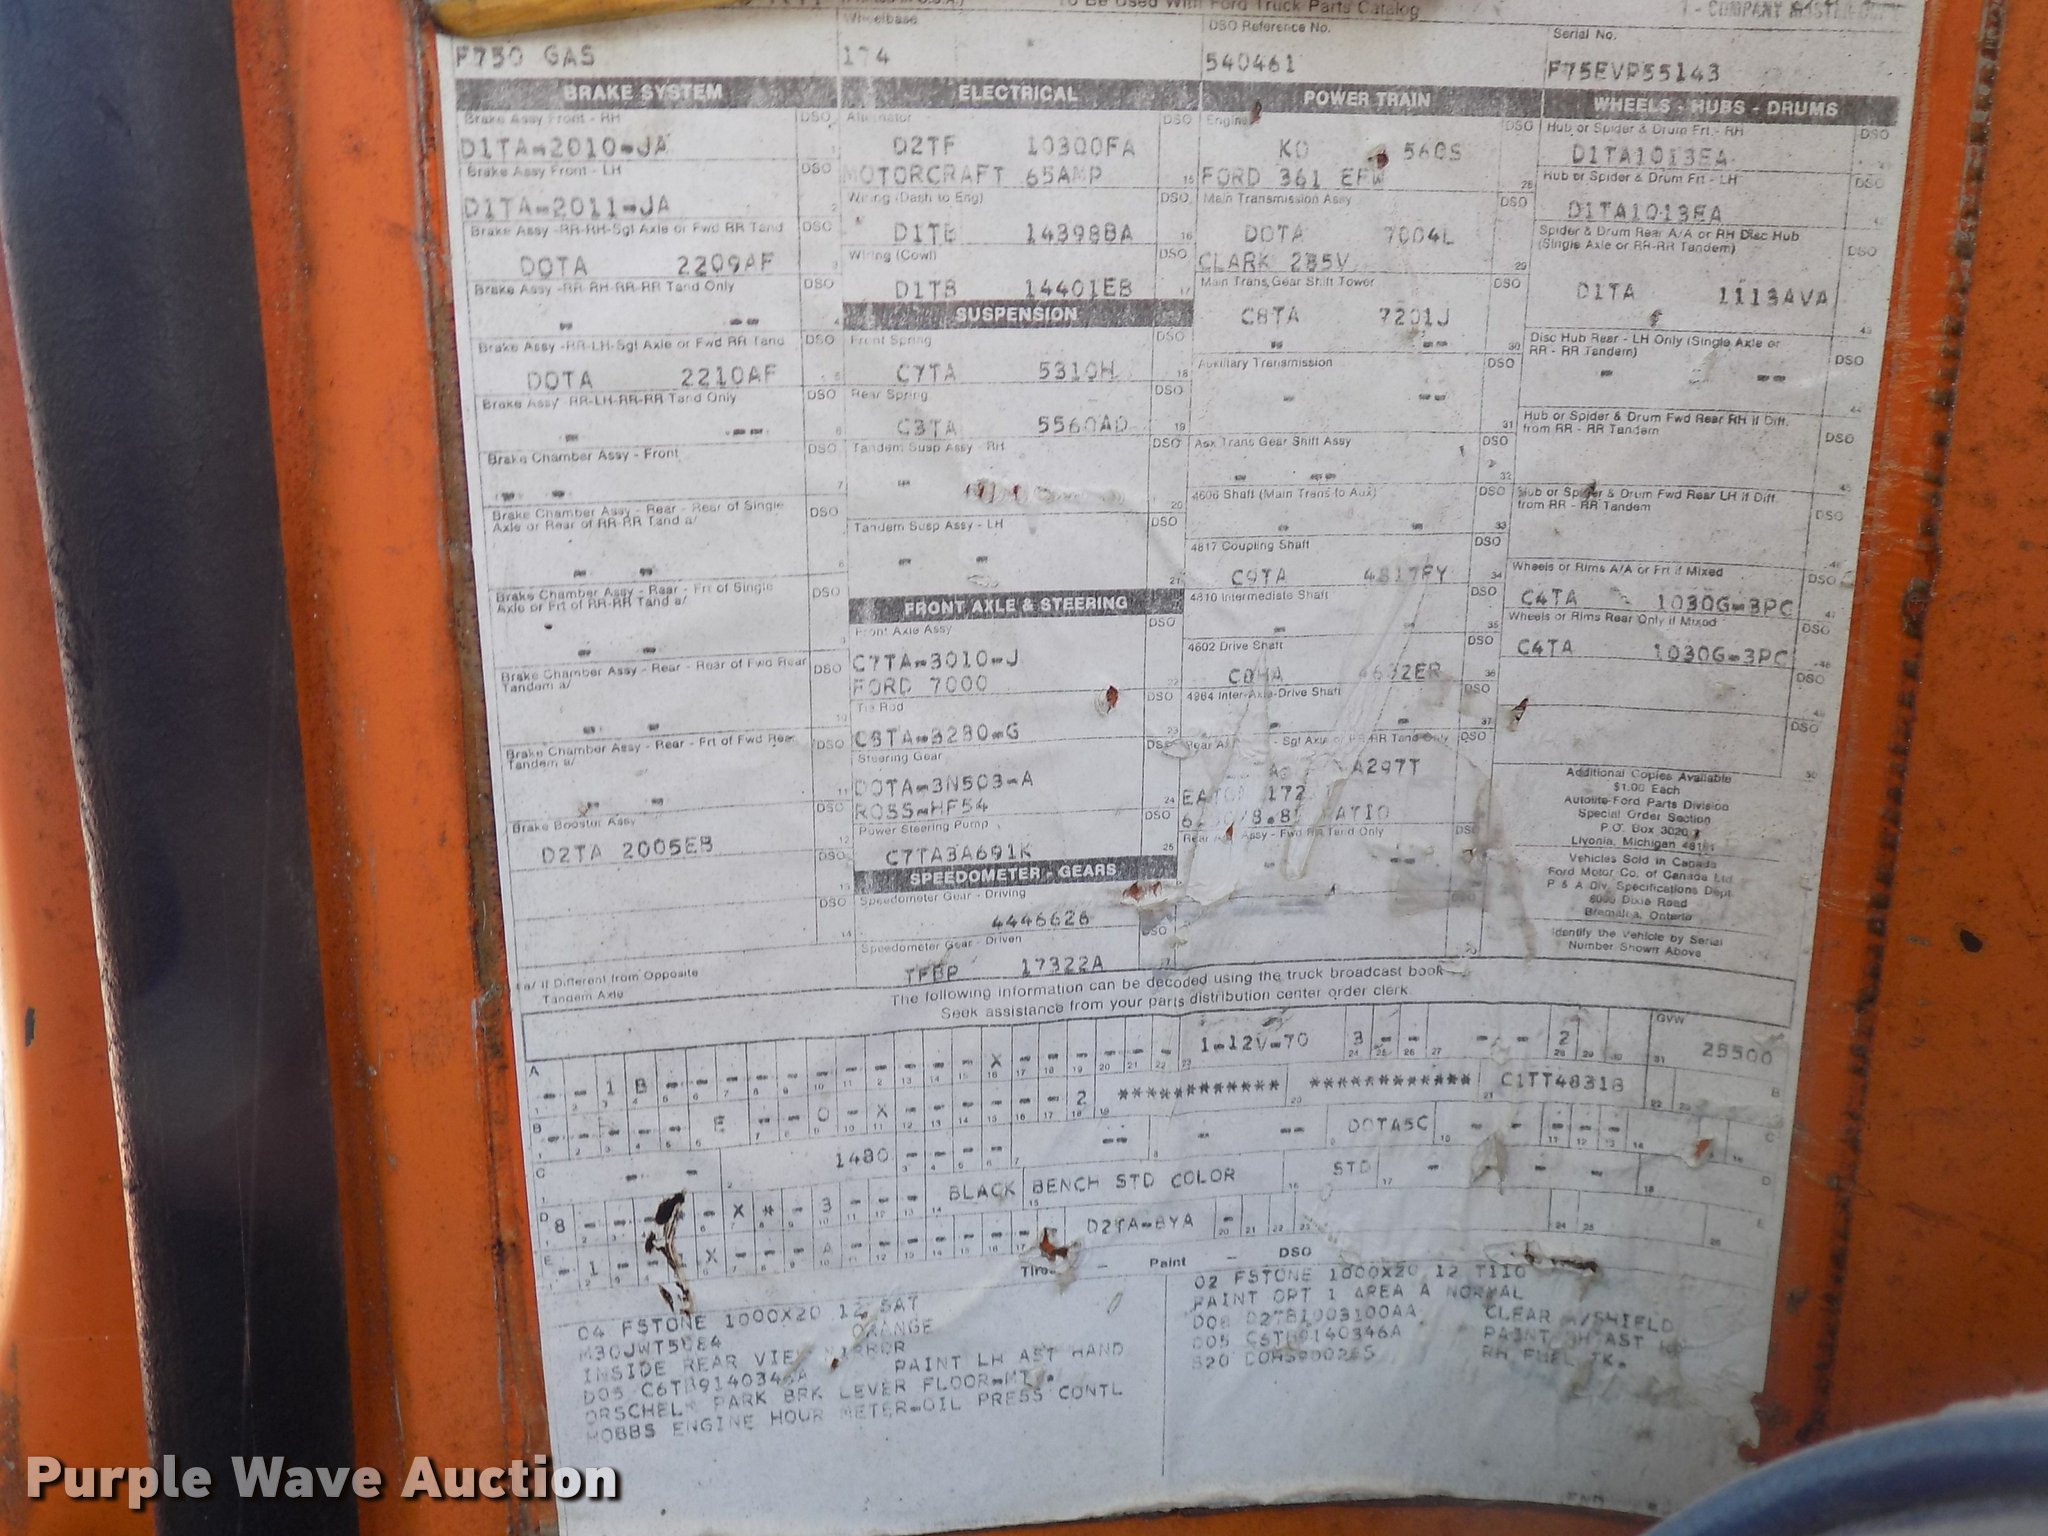 To Be Used With Ford Truck Parts Catalog
Wheelbase
DSO Reference No.
Serial No.
F750 GAS
174
540461
F75EVP55143
BRAKE SYSTEM
Brake Assy Front - RH DSO
D1TA-2010-JA
Brake Assy Front - LH DSO
D1TA-2011-JA
Brake Assy -RR-RH-Sgl Axle or Fwd RR Tand DSO
DOTA 2209AF
Brake Assy -RR-RH-RR-RR Tand Only DSO
Brake Assy -RR-LH-Sgl Axle or Fwd RR Tand DSO
DOTA 2210AF
Brake Assy -RR-LH-RR-RR Tand Only DSO
Brake Chamber Assy - Front DSO
Brake Chamber Assy - Rear - Rear of Single DSO
Axle or Rear of RR-RR Tand a/
Brake Chamber Assy - Rear - Frt of Single DSO
Axle or Frt of RR-RR Tand a/
Brake Chamber Assy - Rear - Rear of Fwd Rear DSO
Tandem a/
Brake Chamber Assy - Rear - Frt of Fwd Rear DSO
Tandem a/
Brake Booster Assy DSO
D2TA 2005EB
DSO
DSO
a/ If Different from Opposite
Tandem Axle
ELECTRICAL
Alternator DSO
D2TF 10300FA
MOTORCRAFT 65AMP
Wiring (Dash to Eng) DSO
14398BA
Wiring (Cowl) DSO
D1TB 14401EB
SUSPENSION
Front Spring DSO
C7TA 5310H
Rear Spring DSO
C3TA 5560AD
Tandem Susp Assy - RH DSO
Tandem Susp Assy - LH DSO
FRONT AXLE & STEERING
Front Axle Assy DSO
C7TA-3010-J
FORD 7000
Tie Rod DSO
C8TA-3280-G
Steering Gear DSO
DOTA-3N503-A
ROSS-HF54
Power Steering Pump DSO
C7TA3A691K
SPEEDOMETER - GEARS
Speedometer Gear - Driving
4446626
Speedometer Gear - Driven DSO
TFBP 17322A
POWER TRAIN
Engine DSO
KD 560S
FORD 361 EFW
Main Transmission Assy DSO
DOTA 7004L
CLARK 285V
Main Trans, Gear Shift Tower DSO
C8TA 7201J
Auxiliary Transmission DSO
Aux Trans Gear Shift Assy DSO
4606 Shaft (Main Trans to Aux) DSO
4817 Coupling Shaft DSO
C9TA 4817FY
4810 Intermediate Shaft DSO
4602 Drive Shaft DSO
4602ER
4864 Inter-Axle-Drive Shaft DSO
Sgl Axle or RR-RR Tand Only DSO
A297T
EATON 172
RATIO
Rear Axle Assy - Fwd RR Tand Only DSO
WHEELS - HUBS - DRUMS
Hub or Spider & Drum Frt - RH DSO
D1TA1013EA
Hub or Spider & Drum Frt - LH DSO
D1TA1013EA
Spider & Drum Rear A/A or RH Disc Hub
(Single Axle or RR-RR Tandem) DSO
D1TA 1113AVA
Disc Hub Rear - LH Only (Single Axle or
RR - RR Tandem) DSO
Hub or Spider & Drum Fwd Rear RH if Diff.
from RR - RR Tandem DSO
Hub or Spider & Drum Fwd Rear LH if Diff.
from RR - RR Tandem DSO
Wheels or Rims A/A or Frt if Mixed DSO
C4TA 1030G-3PC
Wheels or Rims Rear Only if Mixed DSO
C4TA 1030G-3PC
DSO
DSO
Additional Copies Available
$1.00 Each
Autolite-Ford Parts Division
Special Order Section
P.O. Box 3020
Livonia, Michigan
Vehicles Sold in Canada
Ford Motor Co. of Canada Ltd
P & A Div. Specifications Dept
8000 Dixie Road
Bramalea, Ontario
Identify the Vehicle by Serial
Number Shown Above
The following information can be decoded using the truck broadcast book
Seek assistance from your parts distribution center order clerk.
A - - 1 B - - - - - - - - - - - X - - - - - - 1-12V-70 3 - - - - 2 GVW 25500
B - - - - - - E - - O - X - - - - - - 2 *********** *********** C1TT4831B
C - - 1480 - - - - -- - -- DOTA5C - - - - -
D 8 - - - X * - 3 - - - BLACK BENCH STD COLOR STD - - -
E - 1 - - X - - - A - - - - - - D2TA-BYA -
Tires - Paint - DSO
04 FSTONE 1000X20 12 SAT
ORANGE
INSIDE REAR VIEW MIRROR
D05 PAINT LH AST HAND
ORSCHELN PARK BRK LEVER FLOOR-MT.
HOBBS ENGINE HOUR METER-OIL PRESS CONTL
02 FSTONE 1000X20 12 T110
PAINT OPT 1 AREA A NORMAL
D08 D2TB1003100AA CLEAR W/SHIELD
D05 C6TB9140346A PAINT RH AST
RH FUEL TK.
Purple Wave Auction